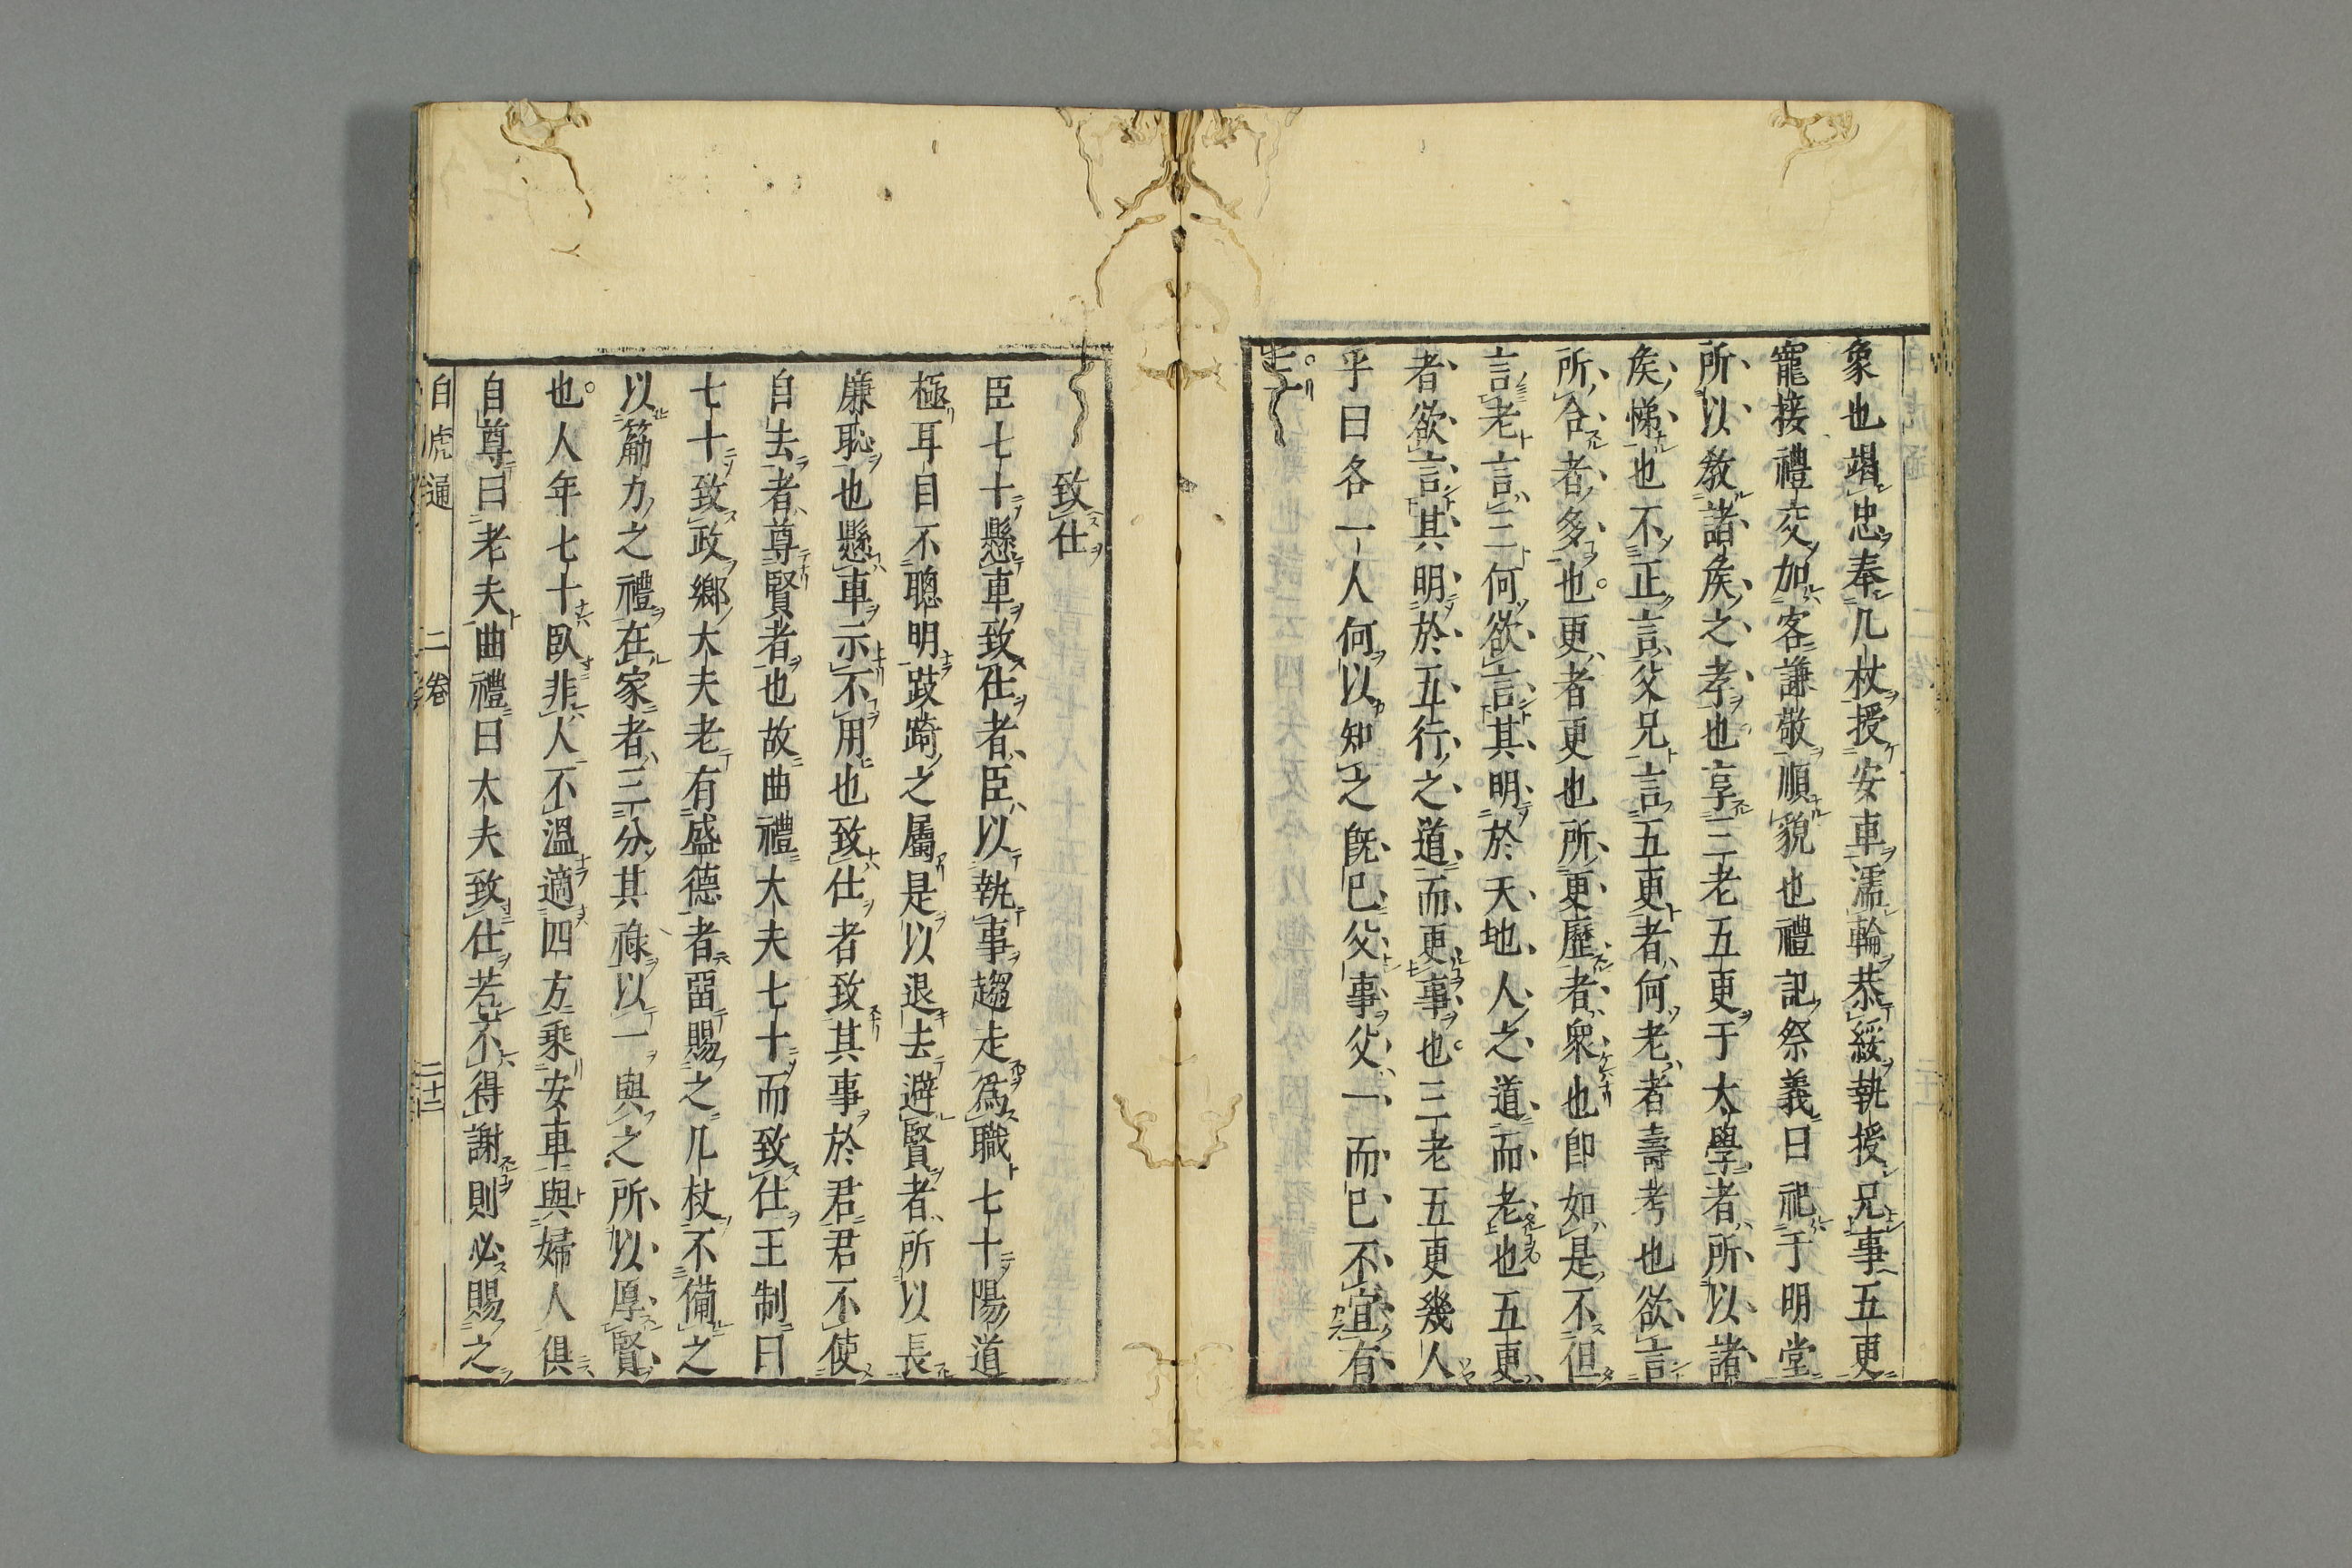 象也竭忠奉几杖授安車濡輪恭綏執授兄事五更
寵接禮交加客謙敬順貌也禮記祭義曰祀于明堂
所以教諸矦之孝也享三老五更于大學者所以諸
矦悌也不正言父兄言五更者何老者壽考也欲言
所令者多也更者更也所更歷者衆也即如是不但
言老言三何欲言其明於天地人之道而老也五更
者欲言其明於五行之道而更事也三老五更幾人
乎曰各一人何以知之既已父事父一而已不宜有
致仕
臣七十懸車致仕者臣以執事趨走爲職七十陽道
極耳目不聰明跂踦之屬是以退去避賢者所以長
廉恥也懸車示不用也致仕者致其事於君君不使
自去者尊賢者也故曲禮大夫七十而致仕王制曰
七十致政鄉大夫老有盛德者留賜之几杖不備之
以筋力之禮在家者三分其祿以一與之所以厚賢
也人年七十臥非人不溫適四方乘安車與婦人俱
自尊曰老夫曲禮曰大夫致仕若不得謝則必賜之
白虎通 二卷 二十二